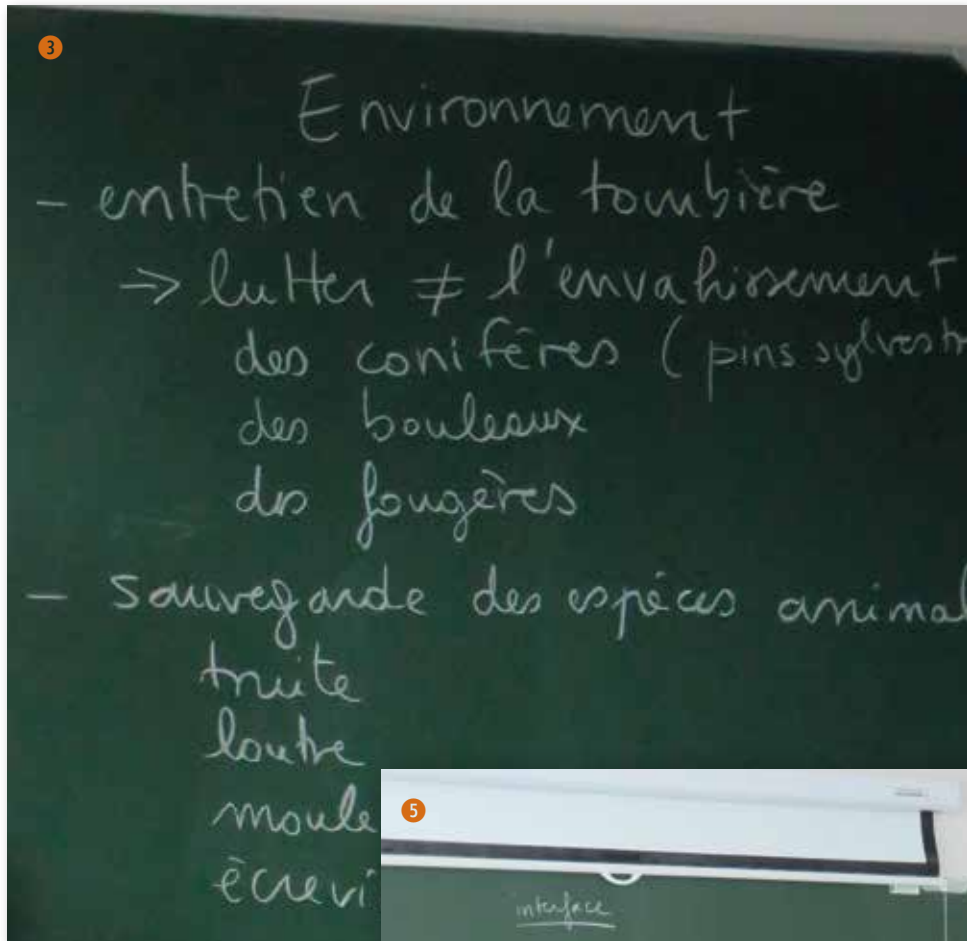 3
Environnement
- entretien de la tourbière
→ lutter ≠ l'envahissement
des conifères (pins sylvestr
des bouleaux
des fougères
- sauvegarde des espèces animal
truite
loutre
moule
écrevi
5
interface